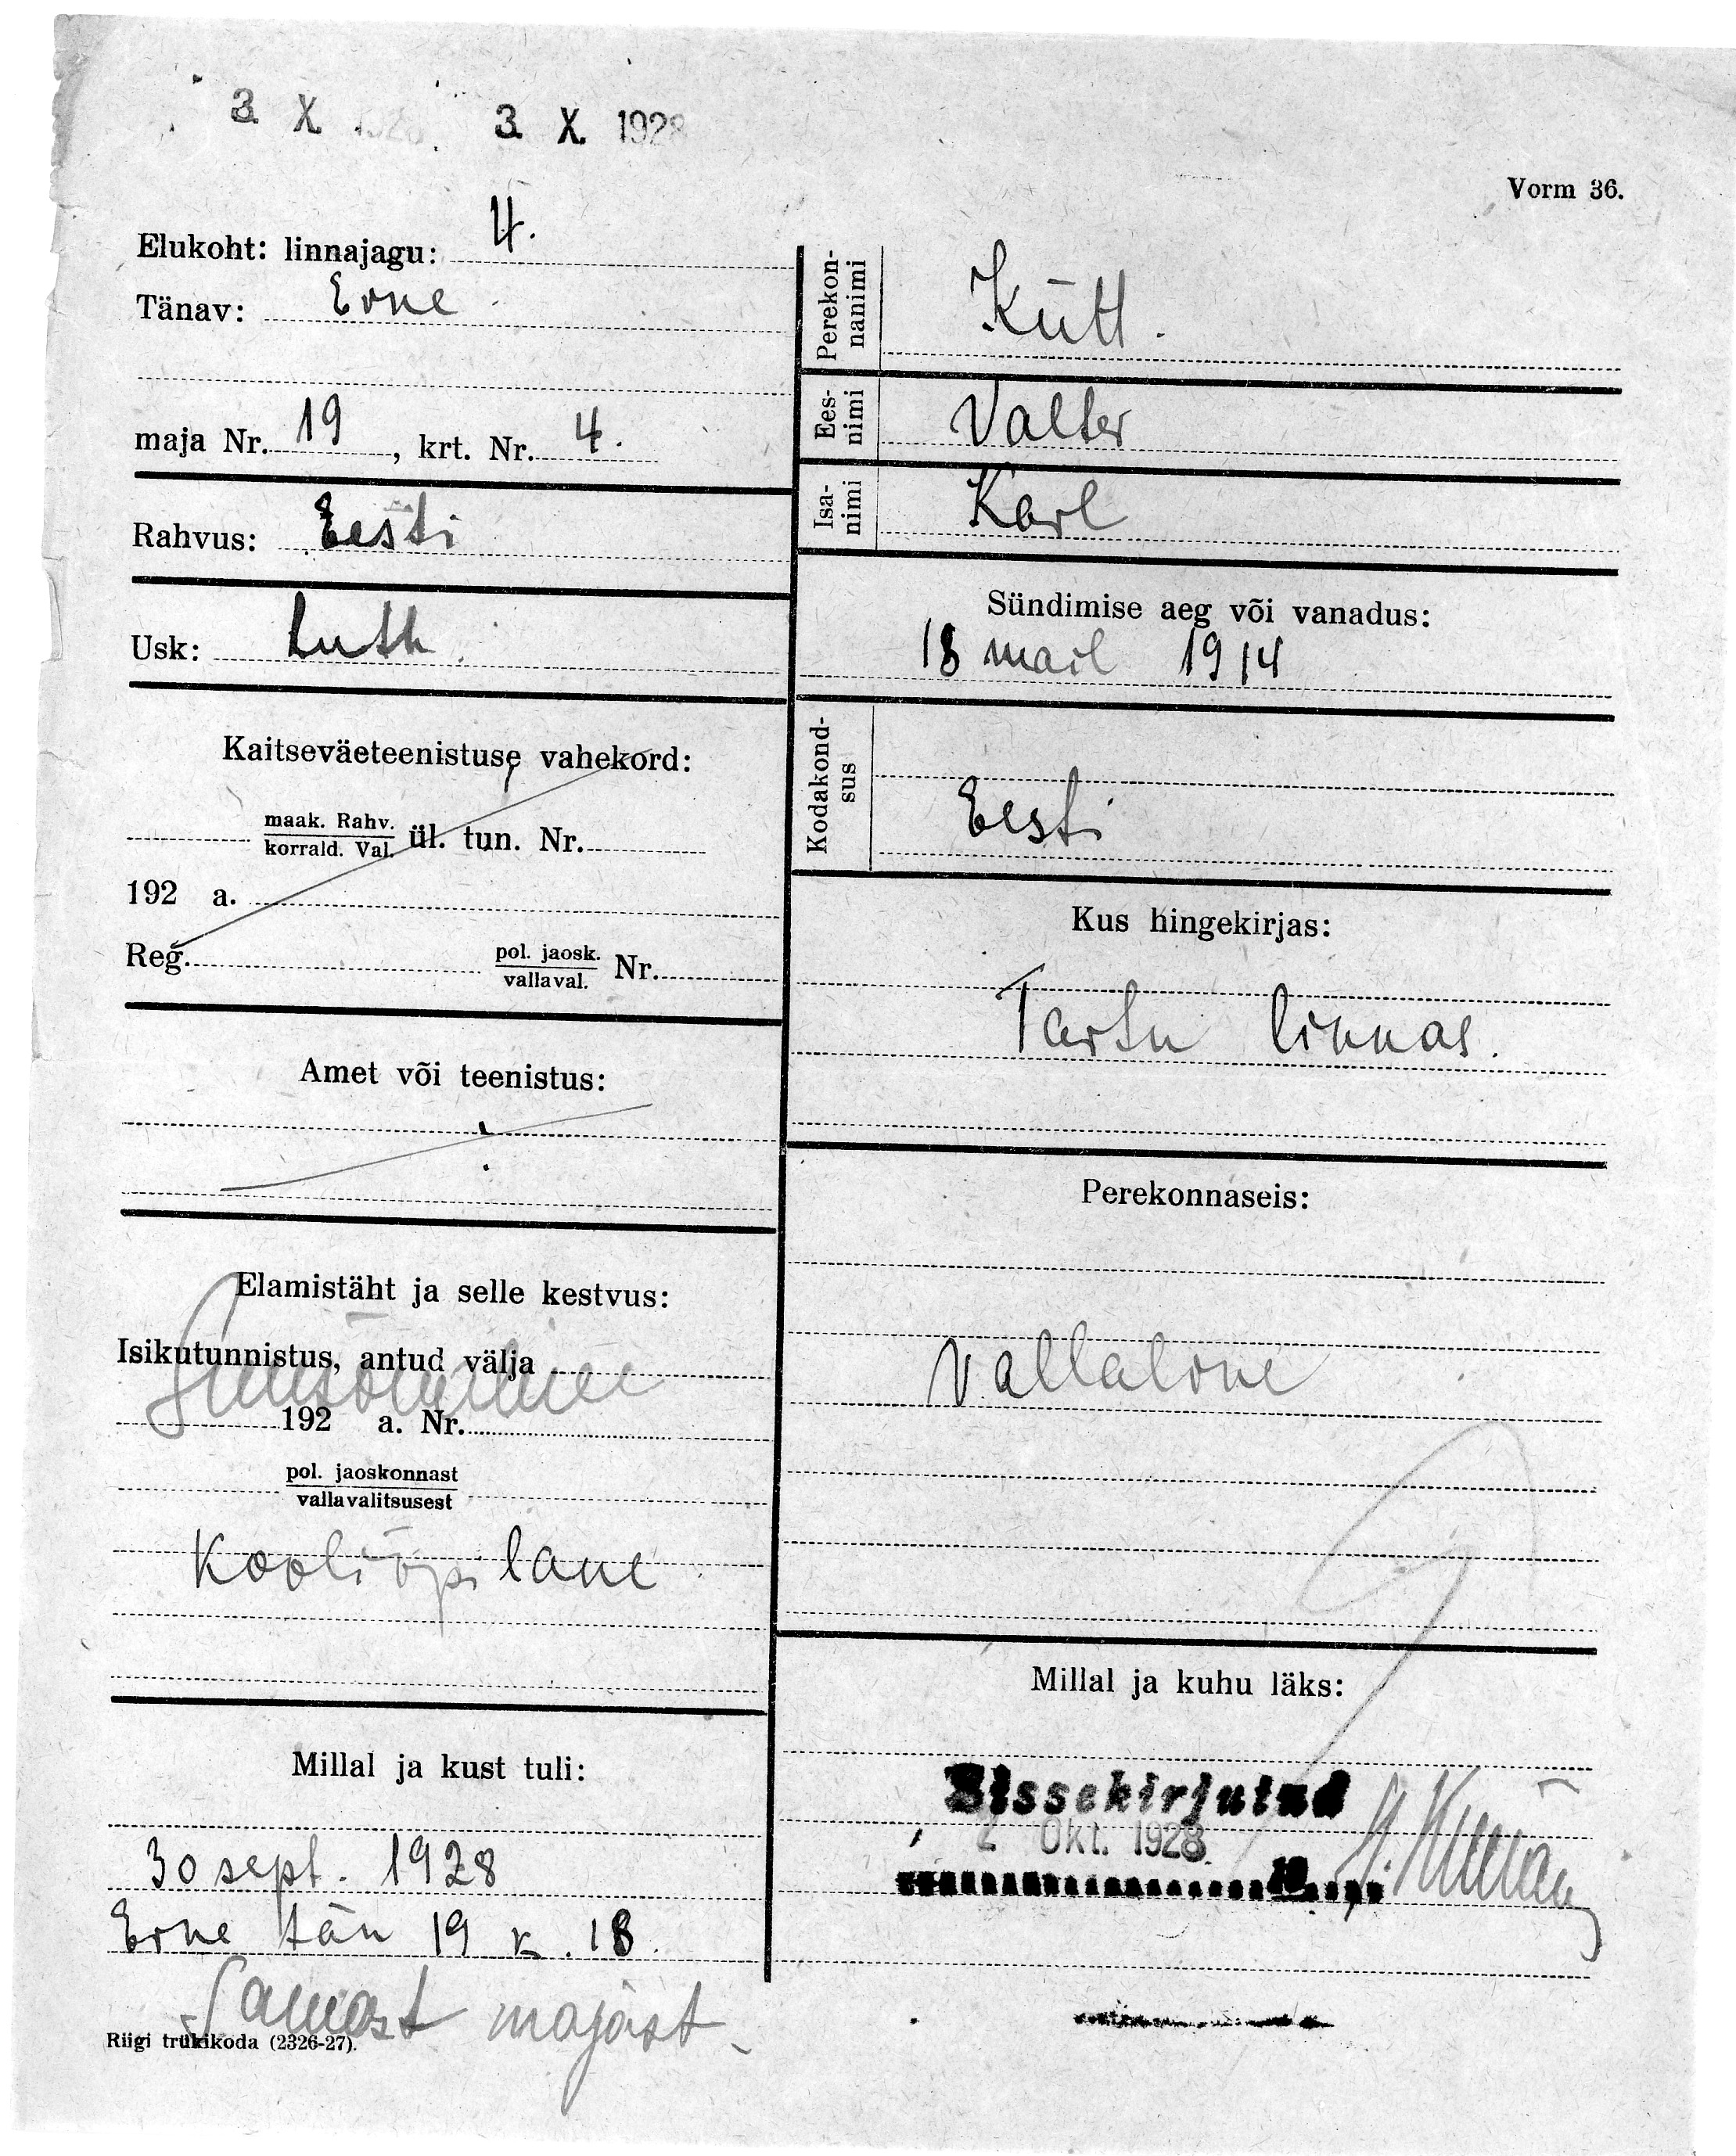 3 X 1928 3 X. 1928
Vorm 36.
Elukoht: linnajagu: 4.
Tänav: Erne
maja Nr. 19, krt. Nr. 4.
Rahvus: Eesti
Usk: Luth.
Kaitseväeteenistuse vahekord:
maak. Rahv.
korrald. Val. ül. tun. Nr.
192 a.
Reg. pol. jaosk.
vallaval. Nr.
Amet või teenistus:
Elamistäht ja selle kestvus:
Isikutunnistus, antud välja
192 a. Nr.
pol. jaoskonnast
vallavalitsusest
Kooliõpilane
Millal ja kust tuli:
30 sept. 1928
Erne tän 19 k. 18.
Samast majast
Riigi trükikoda (2326-27).
Perekon-
nanimi
Kütt.
Ees-
nimi
Valter
Isa-
nimi
Karl
Sündimise aeg või vanadus:
18 mail 1914
Kodakond-
sus
Eesti
Kus hingekirjas:
Tartu linnas.
Perekonnaseis:
Vallaline
Millal ja kuhu läks:
Sissekirjutud
2 Okt. 1928
19